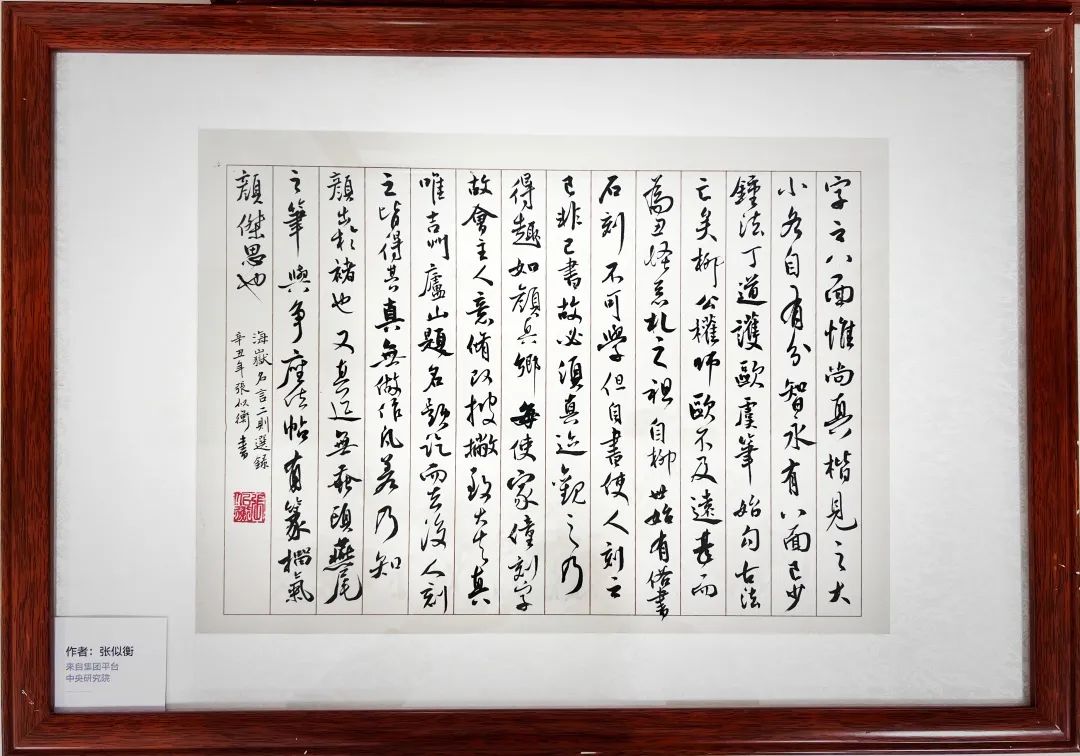 字之八面惟尚真楷見之大
小各自有分智永有八面已少
鍾法丁道護歐虞筆始勻古法
亡矣柳公權師歐不及遠甚而
為丑怪惡札之祖自柳世始有俗書
石刻不可學但自書使人刻之
已非己書故必須真迹觀之乃
得趣如顏真卿每使家僮刻字
故會主人意脩改披撇致大失真
唯吉州廬山題名題訖而去後人刻
之皆得其真無做作凡差乃知
顏出於褚也又真迹無蠶頭燕尾
之筆與爭座位帖有篆籀氣
顏傑思也
海嶽名言二則選錄
辛丑年張似衡書
作者：张似衡
来自集团平台
中央研究院